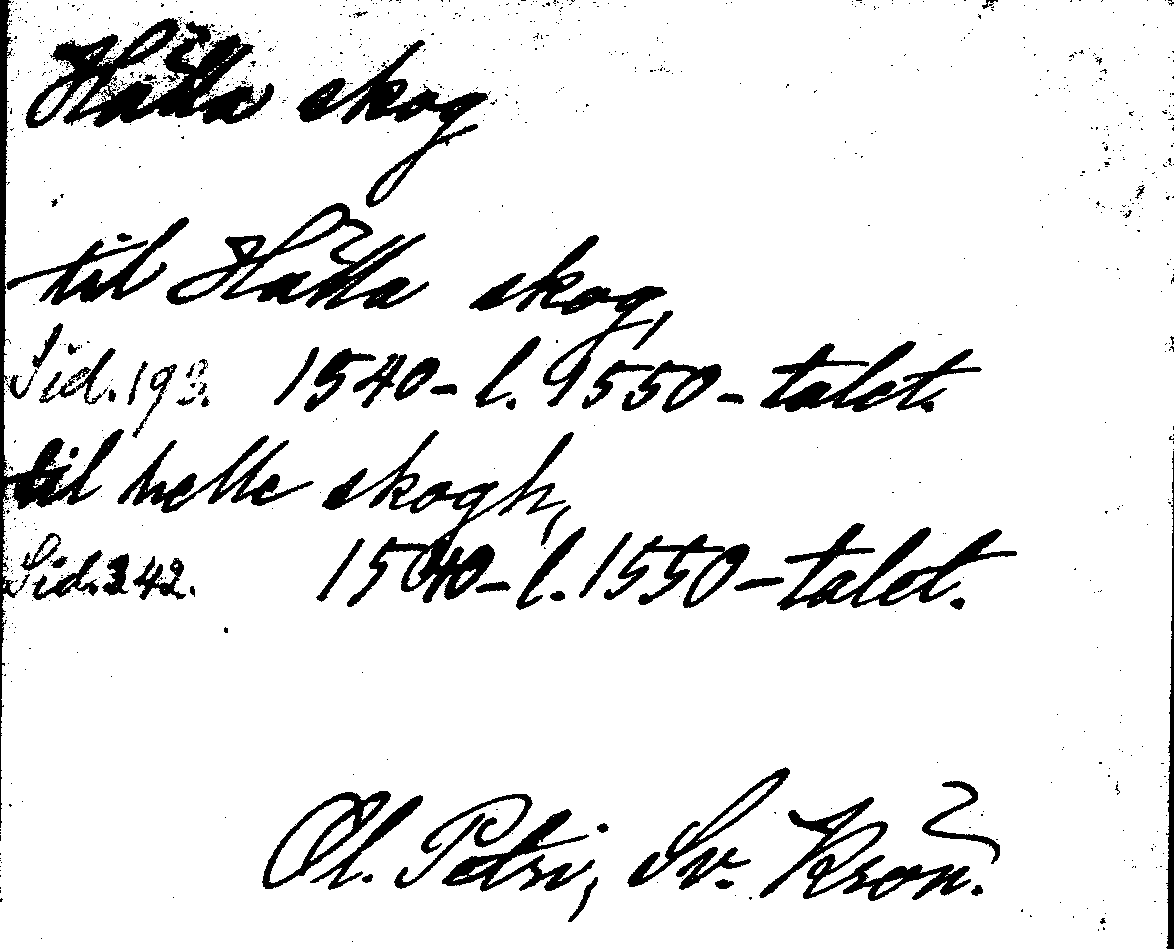 Hälla skog
til Hälla skog,
Sid. 193. 1540- l. 1550-talet.
til helle skogh,
Sid. 242. 1540- l. 1550-talet.
Ol. Petri, Sv. Krön.